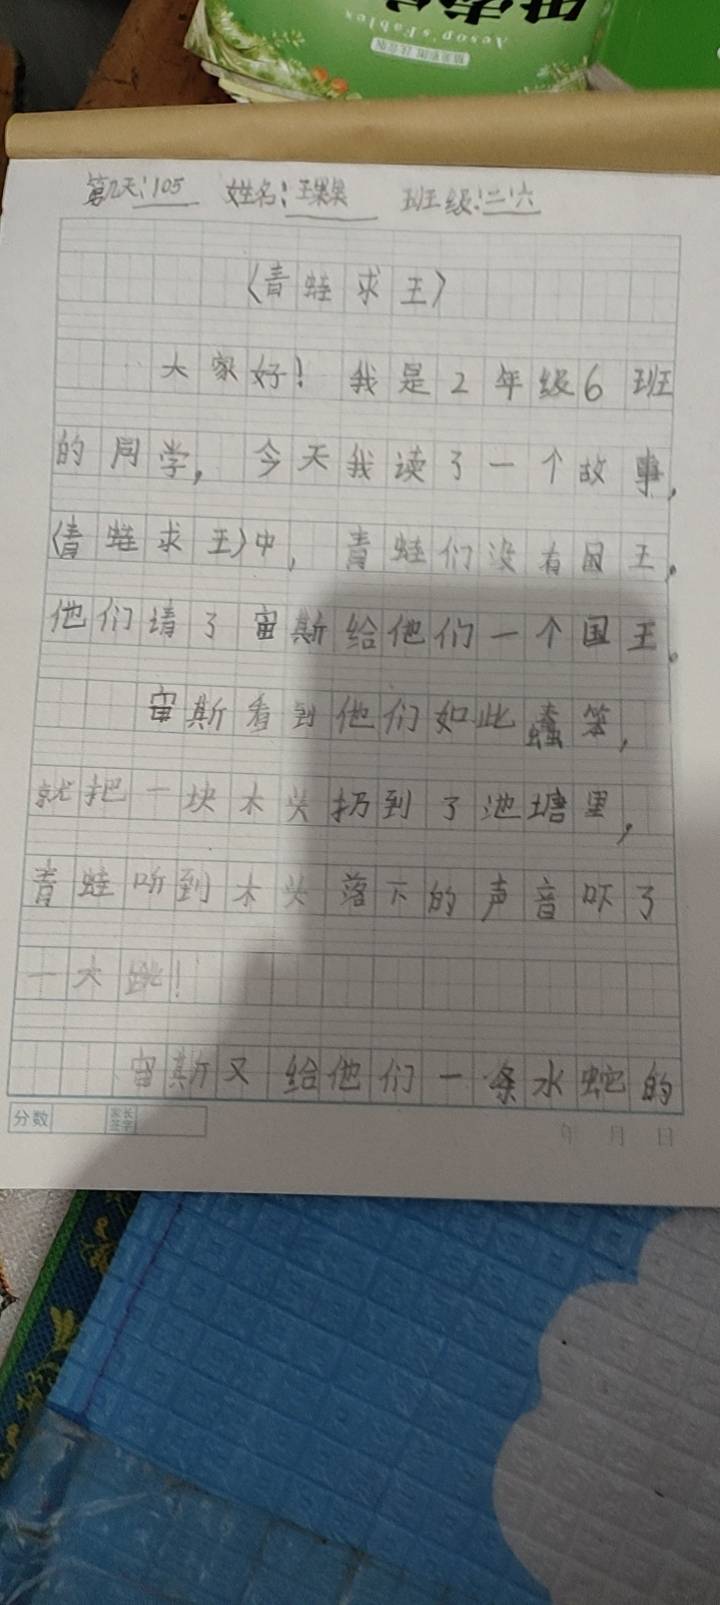 Aesop's Fables
第几天:105 姓名: 班级:二六
〈青蛙求王〉
大家好!我是2年级6班
的同学,今天我读了一个故事,
〈青蛙求王〉中,青蛙们没有国王。
他们请了宙斯给他们一个国王。
宙斯看到他们如此蠢笨,
就把一块木头扔到了池塘里,
青蛙听到木头落下的声音吓了
一大跳!
宙斯又给他们一条水蛇的
分数
家长
签字
年 月 日